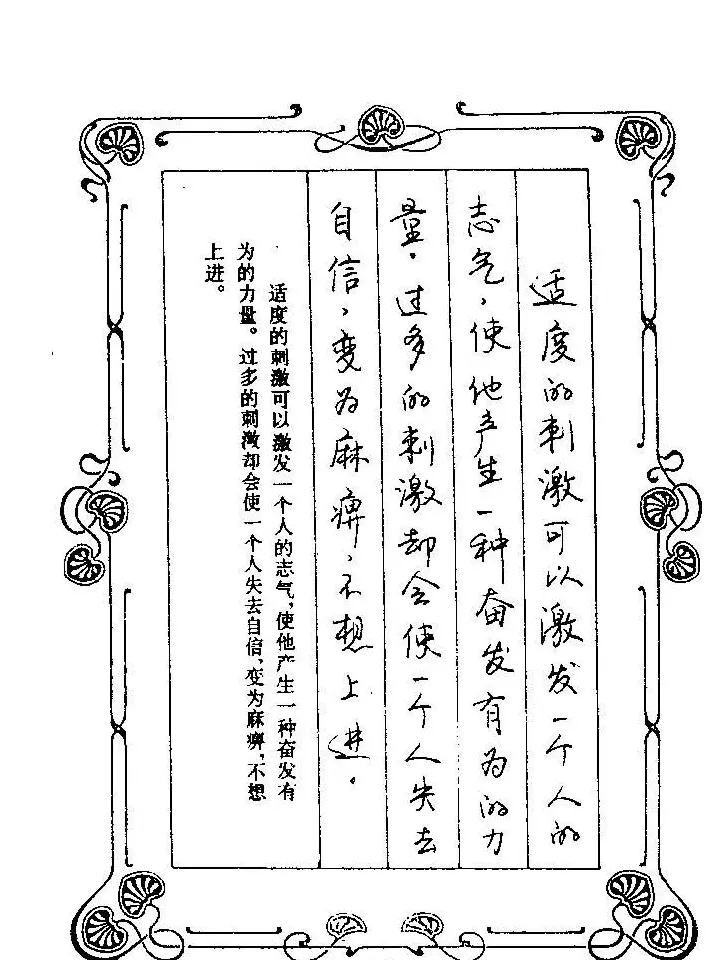 适度的刺激可以激发一个人的
志气，使他产生一种奋发有为的力
量。过多的刺激却会使一个人失去
自信，变为麻痹，不想上进。
适度的刺激可以激发一个人的志气，使他产生一种奋发有
为的力量。过多的刺激却会使一个人失去自信，变为麻痹，不想
上进。